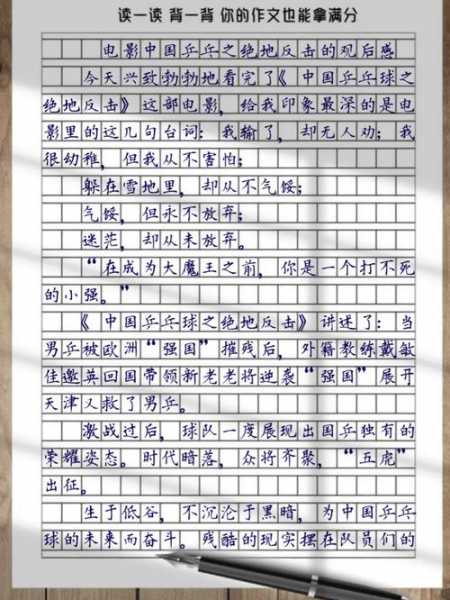 读一读 背一背 你的作文也能拿满分
电影中国乒乓之绝地反击的观后感
今天兴致勃勃地看完了《中国乒乓球之
绝地反击》这部电影，给我印象最深的是电
影里的这几句台词：我输了，却无人劝；我
很幼稚，但我从不害怕；
躲在雪地里，却从不气馁；
气馁，但永不放弃；
迷茫，却从未放弃。
“在成为大魔王之前，你是一个打不死
的小强。”
《中国乒乓球之绝地反击》讲述了：当
男乒被欧洲“强国”摧残后，外籍教练戴敏
佳邀英回国带领新老老将逆袭“强国”展开
天津又救了男乒。
激战过后，球队一度展现出国乒独有的
荣耀姿态。时代暗落，众将齐聚，“五虎”
出征。
生于低谷，不沉沦于黑暗，为中国乒乓
球的未来而奋斗。残酷的现实摆在队员们的